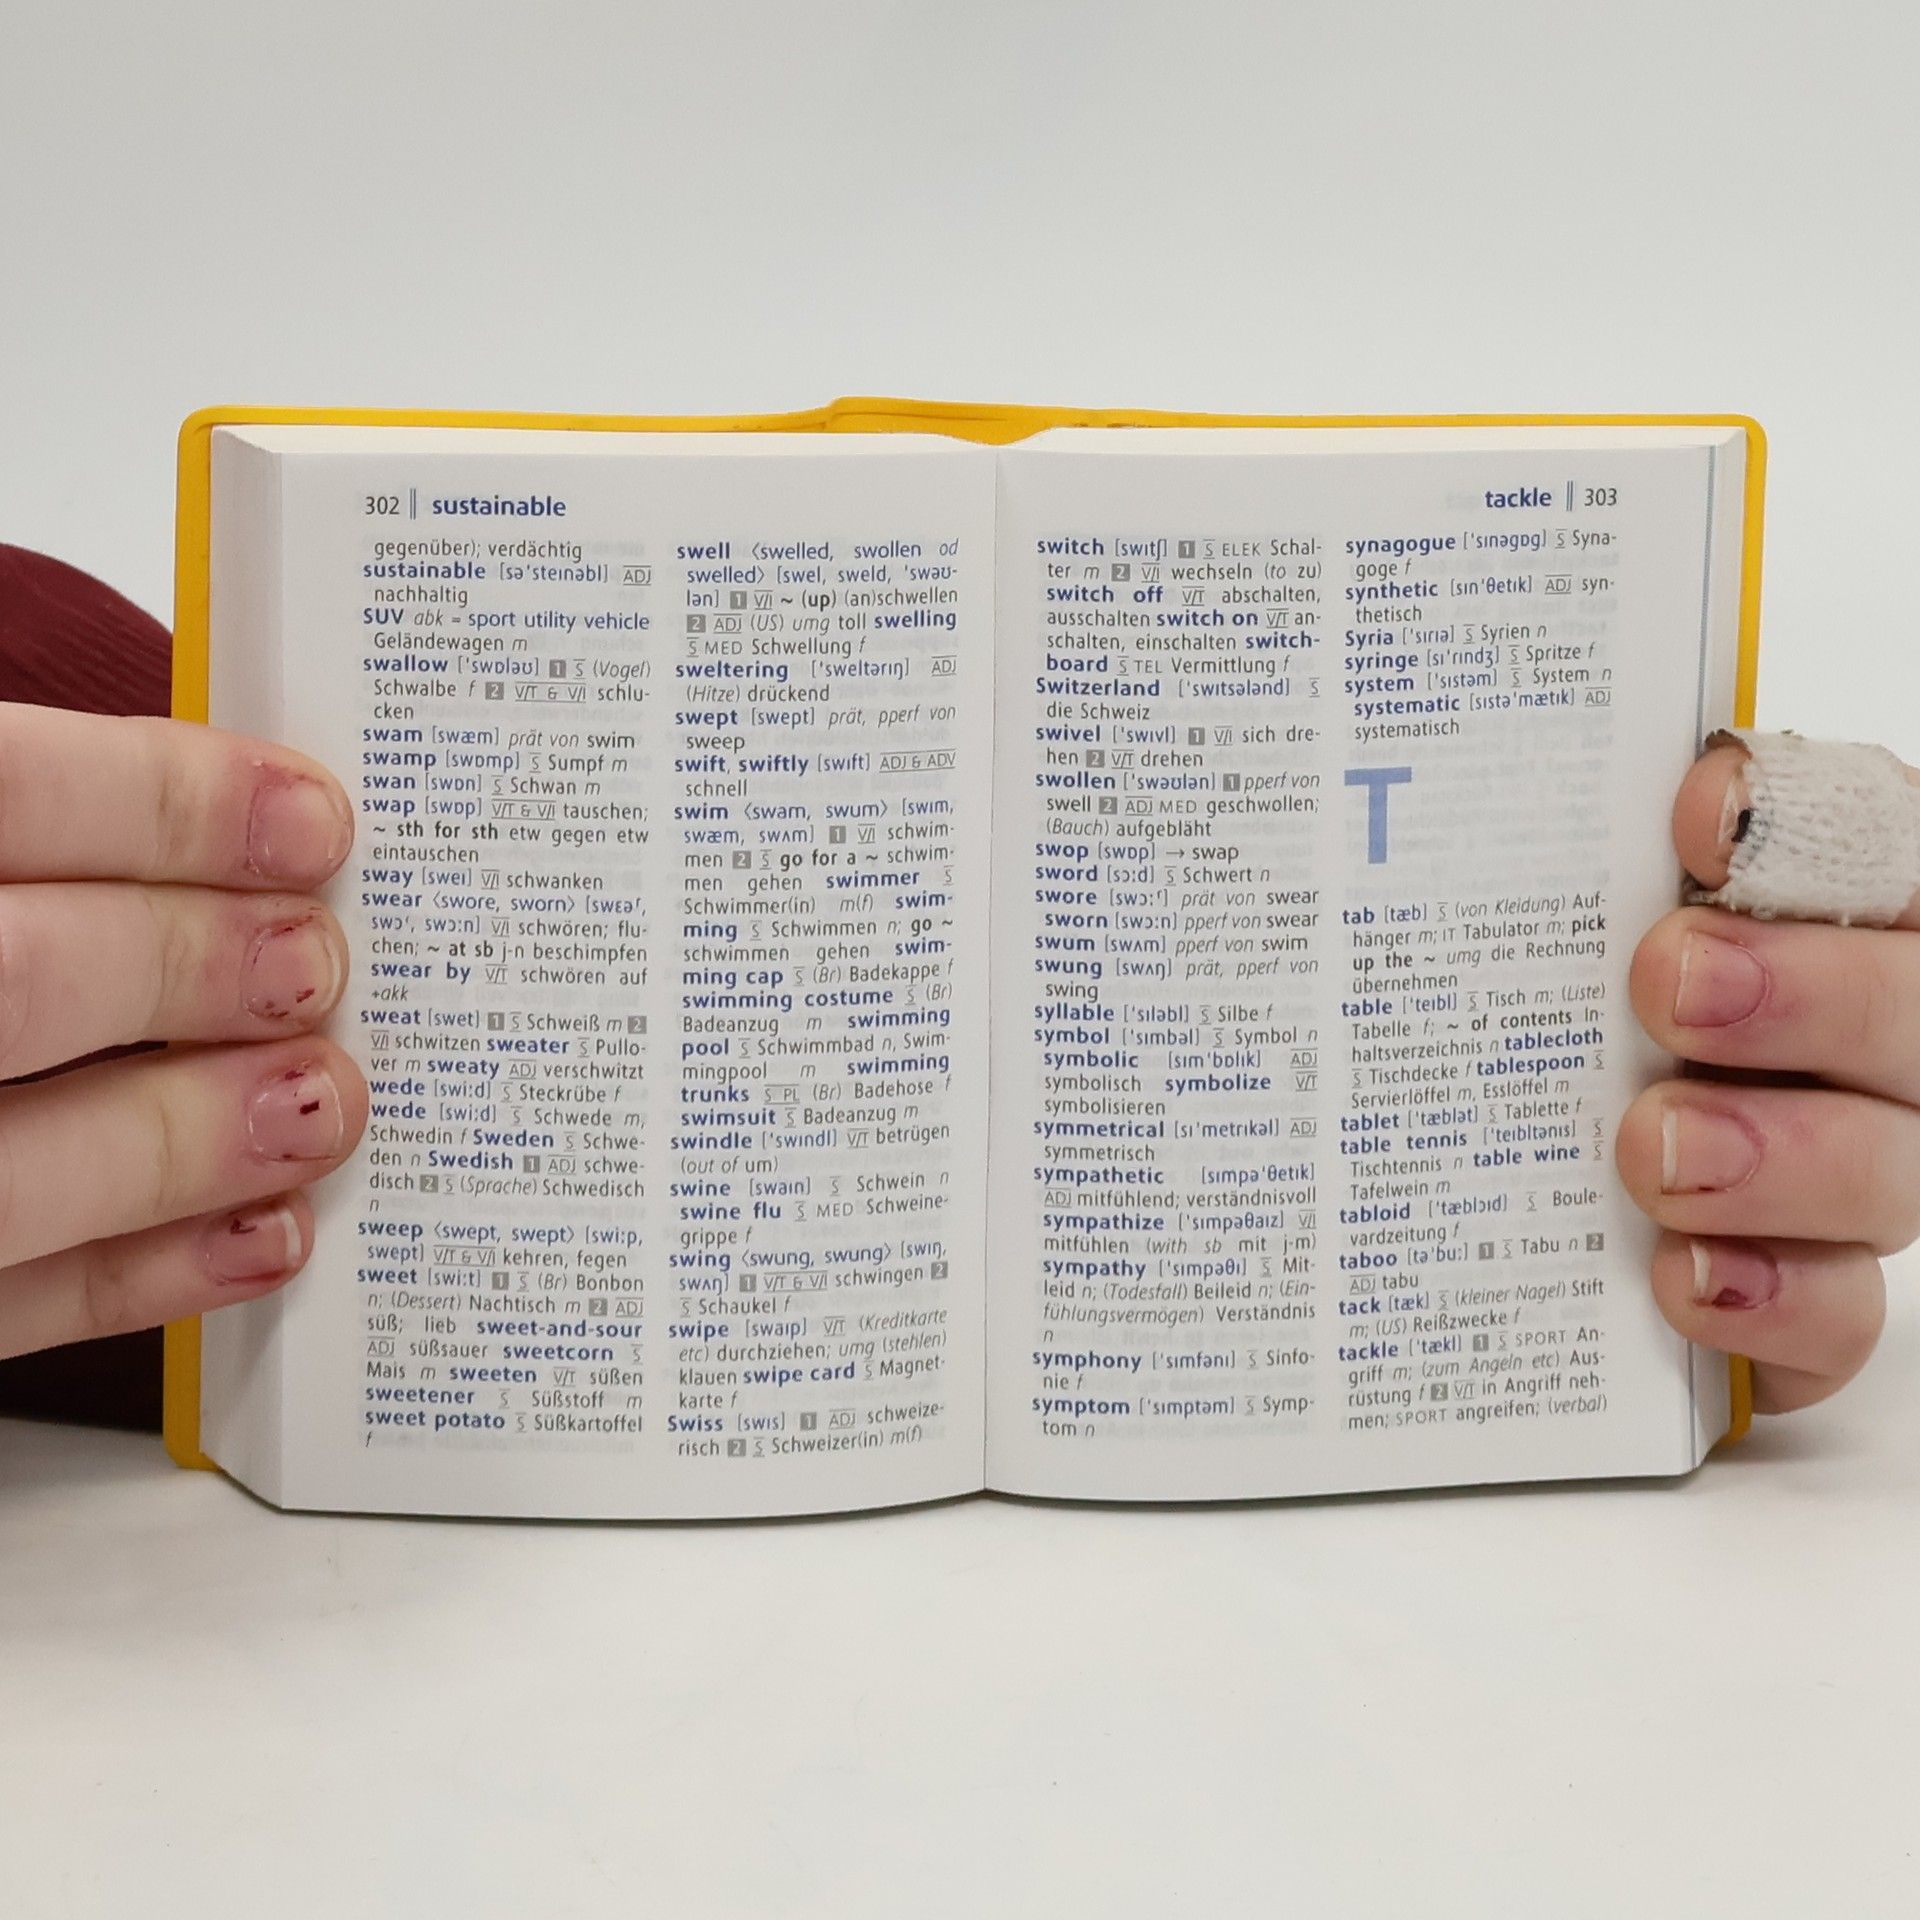 302 || sustainable
gegenüber); verdächtig
sustainable [səˈsteɪnəbl] ADJ
nachhaltig
SUV abk = sport utility vehicle
Geländewagen m
swallow [ˈswɒləʊ] 1 S (Vogel)
Schwalbe f 2 V/T & V/I schlu-
cken
swam [swæm] prät von swim
swamp [swɒmp] S Sumpf m
swan [swɒn] S Schwan m
swap [swɒp] V/T & V/I tauschen;
~ sth for sth etw gegen etw
eintauschen
sway [sweɪ] V/I schwanken
swear <swore, sworn> [swɛəʳ,
swɔʳ, swɔːn] V/I schwören; flu-
chen; ~ at sb j-n beschimpfen
swear by V/T schwören auf
+akk
sweat [swet] 1 S Schweiß m 2
V/I schwitzen sweater S Pullo-
ver m sweaty ADJ verschwitzt
wede [swiːd] S Steckrübe f
wede [swiːd] S Schwede m,
Schwedin f Sweden S Schwe-
den n Swedish 1 ADJ schwe-
disch 2 S (Sprache) Schwedisch
n
sweep <swept, swept> [swiːp,
swept] V/T & V/I kehren, fegen
sweet [swiːt] 1 S (Br) Bonbon
n; (Dessert) Nachtisch m 2 ADJ
süß; lieb sweet-and-sour
ADJ süßsauer sweetcorn S
Mais m sweeten V/T süßen
sweetener S Süßstoff m
sweet potato S Süßkartoffel
f
swell <swelled, swollen od
swelled> [swel, sweld, ˈswəʊ-
lən] 1 V/I ~ (up) (an)schwellen
2 ADJ (US) umg toll swelling
S MED Schwellung f
sweltering [ˈsweltərɪŋ] ADJ
(Hitze) drückend
swept [swept] prät, pperf von
sweep
swift, swiftly [swɪft] ADJ & ADV
schnell
swim <swam, swum> [swɪm,
swæm, swʌm] 1 V/I schwim-
men 2 S go for a ~ schwim-
men gehen swimmer S
Schwimmer(in) m(f) swim-
ming S Schwimmen n; go ~
schwimmen gehen swim-
ming cap S (Br) Badekappe f
swimming costume S (Br)
Badeanzug m swimming
pool S Schwimmbad n, Swim-
mingpool m swimming
trunks S PL (Br) Badehose f
swimsuit S Badeanzug m
swindle [ˈswɪndl] V/T betrügen
(out of um)
swine [swaɪn] S Schwein n
swine flu S MED Schweine-
grippe f
swing <swung, swung> [swɪŋ,
swʌŋ] 1 V/T & V/I schwingen 2
S Schaukel f
swipe [swaɪp] V/T (Kreditkarte
etc) durchziehen; umg (stehlen)
klauen swipe card S Magnet-
karte f
Swiss [swɪs] 1 ADJ schweize-
risch 2 S Schweizer(in) m(f)
tackle || 303
switch [swɪtʃ] 1 S ELEK Schal-
ter m 2 V/I wechseln (to zu)
switch off V/T abschalten,
ausschalten switch on V/T an-
schalten, einschalten switch-
board S TEL Vermittlung f
Switzerland [ˈswɪtsələnd] S
die Schweiz
swivel [ˈswɪvl] 1 V/I sich dre-
hen 2 V/T drehen
swollen [ˈswəʊlən] 1 pperf von
swell 2 ADJ MED geschwollen;
(Bauch) aufgebläht
swop [swɒp] → swap
sword [sɔːd] S Schwert n
swore [swɔːʳ] prät von swear
sworn [swɔːn] pperf von swear
swum [swʌm] pperf von swim
swung [swʌŋ] prät, pperf von
swing
syllable [ˈsɪləbl] S Silbe f
symbol [ˈsɪmbəl] S Symbol n
symbolic [sɪmˈbɒlɪk] ADJ
symbolisch symbolize V/T
symbolisieren
symmetrical [sɪˈmetrɪkəl] ADJ
symmetrisch
sympathetic [sɪmpəˈθetɪk]
ADJ mitfühlend; verständnisvoll
sympathize [ˈsɪmpəθaɪz] V/I
mitfühlen (with sb mit j-m)
sympathy [ˈsɪmpəθɪ] S Mit-
leid n; (Todesfall) Beileid n; (Ein-
fühlungsvermögen) Verständnis
n
symphony [ˈsɪmfənɪ] S Sinfo-
nie f
symptom [ˈsɪmptəm] S Symp-
tom n
synagogue [ˈsɪnəgɒg] S Syna-
goge f
synthetic [sɪnˈθetɪk] ADJ syn-
thetisch
Syria [ˈsɪrɪə] S Syrien n
syringe [sɪˈrɪndʒ] S Spritze f
system [ˈsɪstəm] S System n
systematic [sɪstəˈmætɪk] ADJ
systematisch
T
tab [tæb] S (von Kleidung) Auf-
hänger m; IT Tabulator m; pick
up the ~ umg die Rechnung
übernehmen
table [ˈteɪbl] S Tisch m; (Liste)
Tabelle f; ~ of contents In-
haltsverzeichnis n tablecloth
S Tischdecke f tablespoon S
Servierlöffel m, Esslöffel m
tablet [ˈtæblət] S Tablette f
table tennis [ˈteɪbltənɪs] S
Tischtennis n table wine S
Tafelwein m
tabloid [ˈtæblɔɪd] S Boule-
vardzeitung f
taboo [təˈbuː] 1 S Tabu n 2
ADJ tabu
tack [tæk] S (kleiner Nagel) Stift
m; (US) Reißzwecke f
tackle [ˈtækl] 1 S SPORT An-
griff m; (zum Angeln etc) Aus-
rüstung f 2 V/T in Angriff neh-
men; SPORT angreifen; (verbal)